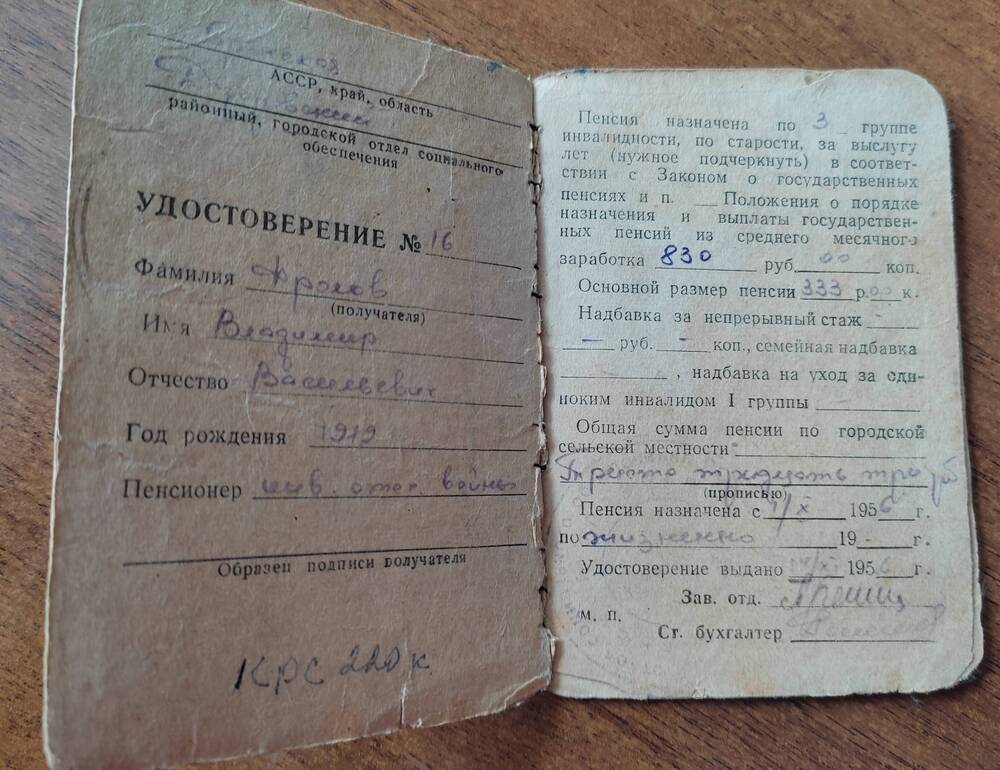 АССР, край, область
районный, городской отдел социального
обеспечения
УДОСТОВЕРЕНИЕ № 16
Фамилия Фролов
(получателя)
Имя Владимир
Отчество Васильевич
Год рождения 1919
Пенсионер инв. отеч войны
Образец подписи получателя
КРС 220 к
Пенсия назначена по 3 группе
инвалидности, по старости, за выслугу
лет (нужное подчеркнуть) в соответ-
ствии с Законом о государственных
пенсиях и п. Положения о порядке
назначения и выплаты государствен-
ных пенсий из среднего месячного
заработка 830 руб. 00 коп.
Основной размер пенсии 333 р. 00 к.
Надбавка за непрерывный стаж -
- руб. - коп., семейная надбавка
, надбавка на уход за оди-
ноким инвалидом I группы
Общая сумма пенсии по городской
сельской местности
Триста тридцать три руб
(прописью)
Пенсия назначена с 1/X 1956 г.
пожизненно 19 - г.
Удостоверение выдано 1956 г.
Зав. отд.
м. п.
Ст. бухгалтер